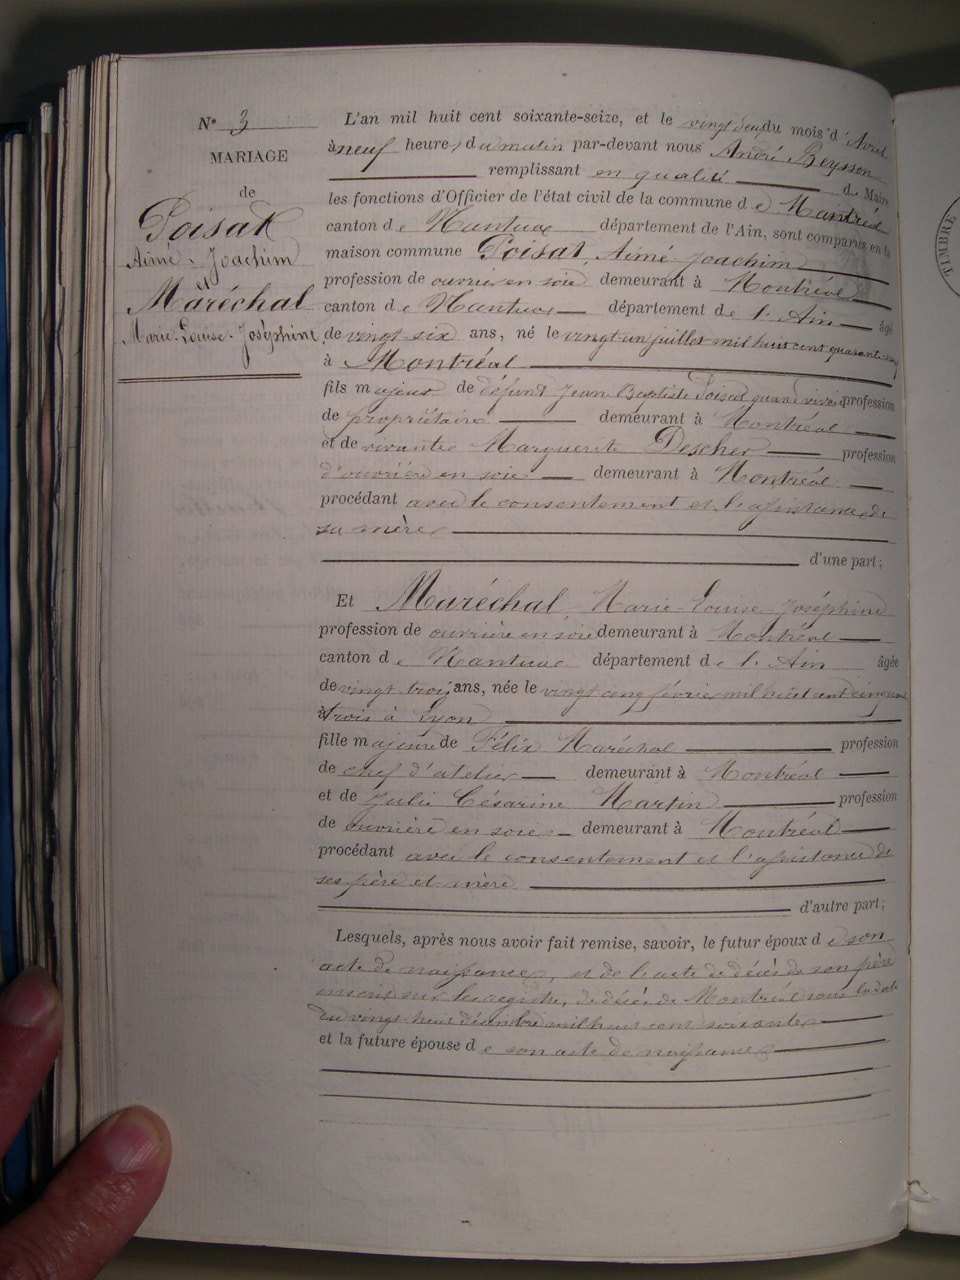 N° 3
MARIAGE
de
Poisat
Aimé Joachim
et
Maréchal
Marie Louise Joséphine
L'an mil huit cent soixante-seize, et le vingt deux du mois d'Avril
à neuf heures du matin par-devant nous André Beysson
remplissant en qualité de Maire
les fonctions d'Officier de l'état civil de la commune de Montréal
canton de Nantua département de l'Ain, sont comparus en la
maison commune Poisat, Aimé Joachim
profession de ouvrier en soie demeurant à Montréal
canton de Nantua département de l'Ain âgé
de vingt six ans, né le vingt un juillet mil huit cent quarante neuf
à Montréal
fils majeur de défunt Jean Baptiste Poisat quand vivait profession
de propriétaire demeurant à Montréal
et de vivante Marguerite Descher profession
d'ouvrière en soie demeurant à Montréal
procédant avec le consentement et l'assistance de
sa mère
d'une part;
Et Maréchal Marie Louise Joséphine
profession de ouvrière en soie demeurant à Montréal
canton de Nantua département de l'Ain âgée
de vingt trois ans, née le vingt cinq février mil huit cent cinquante
trois à Lyon
fille majeure de Félix Maréchal profession
de chef d'atelier demeurant à Montréal
et de Julie Césarine Martin profession
de ouvrière en soie demeurant à Montréal
procédant avec le consentement et l'assistance de
ses père et mère
d'autre part;
Lesquels, après nous avoir fait remise, savoir, le futur époux de son
acte de naissance, et de l'acte de décès de son père
inscrit sur les registres de décès de Montréal sous la date
du vingt huit décembre mil huit cent soixante
et la future épouse de son acte de naissance
TIMBRE